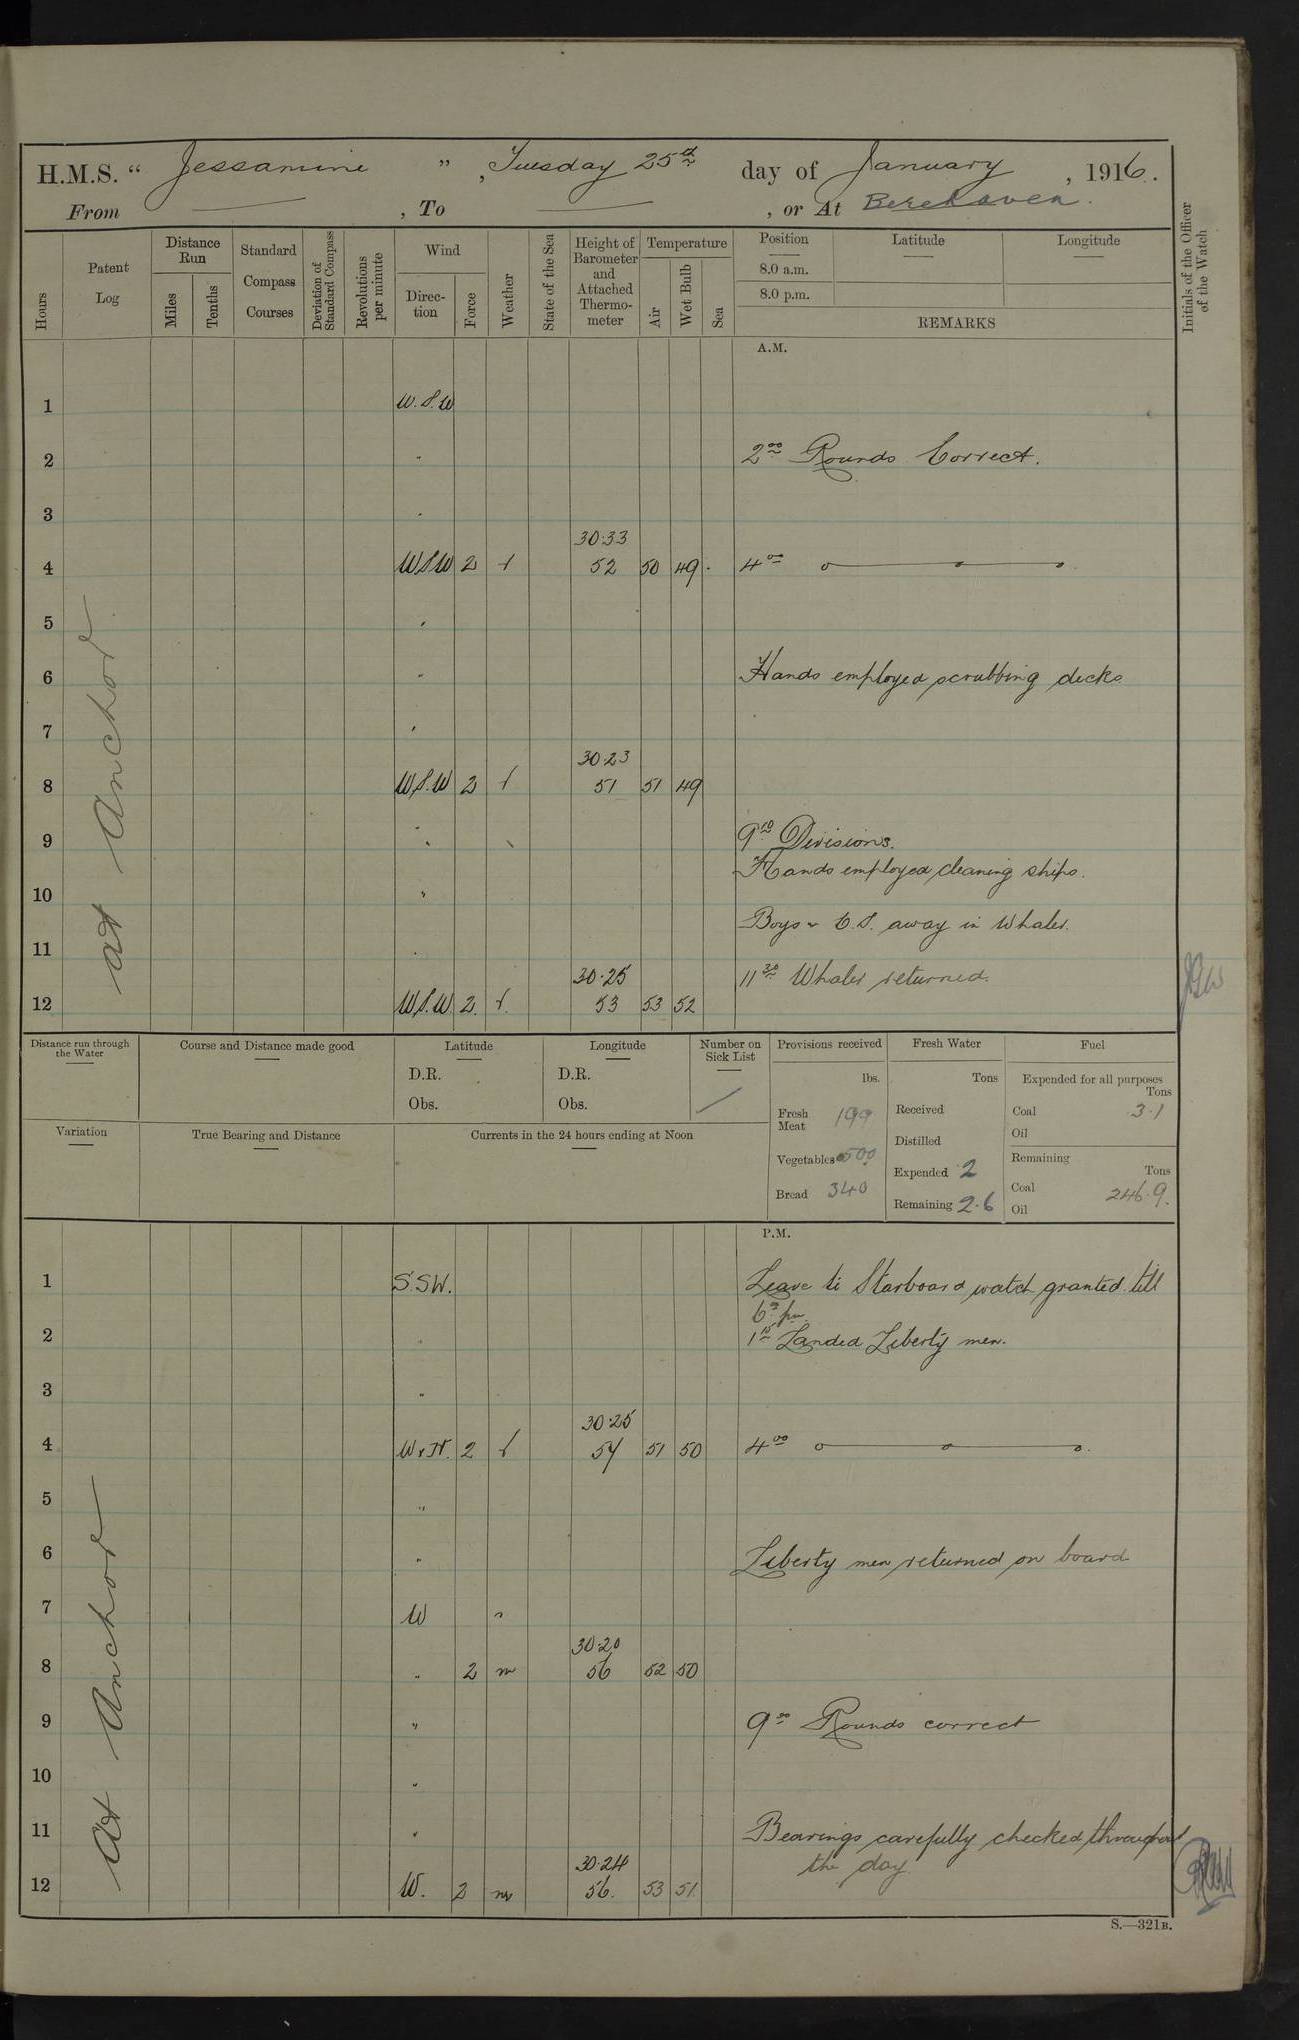 H.M.S. “ Jessamine ”, Tuesday 25th day of January, 1916.
From — , To — , or At Berehaven.
Initials of the Officer of the Watch
Hours
Patent Log
Distance Run
Miles
Tenths
Standard Compass Courses
Deviation of Standard Compass
Revolutions per minute
Wind
Direc-tion
Force
Weather
State of the Sea
Height of Barometer and Attached Thermo-meter
Temperature
Air
Wet Bulb
Sea
Position
8.0 a.m.
8.0 p.m.
Latitude
Longitude
REMARKS
A.M.
At Anchor
1 W.S.W
2 " 2 00 Rounds Correct.
3 "
30.33
4 WSW 2 52 50 49 4 00
5 "
6 " Hands employed scrubbing decks
7 "
30.23
8 W.S.W 2 51 51 49
9 " 9 10 Divisions.
Hands employed cleaning ships.
10 "
Boys & O.S. away in Whaler.
11 "
30.25 11 30 Whaler returned.
12 W.S.W. 2 53 53 52
Distance run through the Water
Course and Distance made good
Latitude
D.R.
Obs.
Longitude
D.R.
Obs.
Number on Sick List
Provisions received
lbs.
Fresh Meat 199
Vegetables 500
Bread 340
Fresh Water
Tons
Received
Distilled
Expended 2
Remaining 2.6
Fuel
Expended for all purposes
Tons
Coal 3.1
Oil
Remaining
Tons
Coal 246.9.
Oil
Variation
True Bearing and Distance
Currents in the 24 hours ending at Noon
P.M.
At Anchor
1 S.SW. Leave to Starboard watch granted till
6 pm
2 " 1 15 Landed Liberty men.
3 "
30.25
4 2 54 51 50 4 00
5 "
6 " Liberty men returned on board
7 W "
30.20
8 " 2 m 56 52 50
9 " 9 00 Rounds correct
10 "
11 " Bearings carefully checked throughout
30.24 the day
12 W. 2 m 56. 53 51
S.—321B.